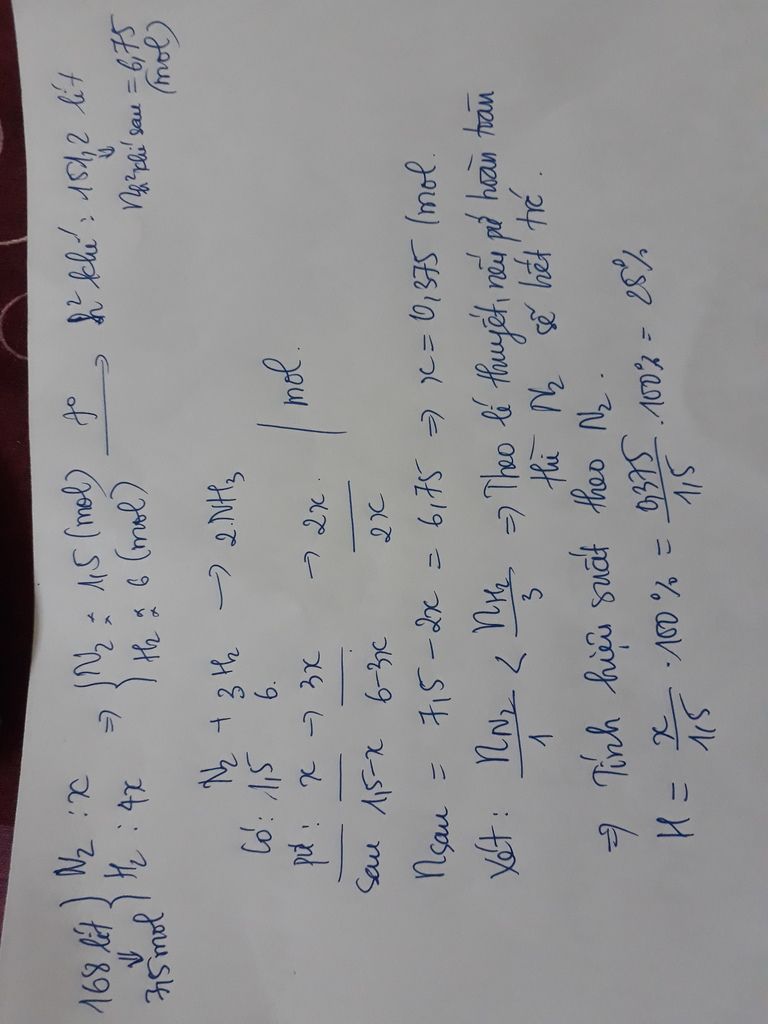 168 lít } N2 : x => { N2 : 1,5 (mol) to → h² khí : 151,2 lít
7,5 mol } H2 : 4x { H2 : 6 (mol) n h² khí sau = 6,75 (mol)
N2 + 3H2 → 2NH3
Có : 1,5 6
pứ : x → 3x → 2x / mol.
Sau 1,5-x 6-3x 2x
nsau = 7,5 - 2x = 6,75 => x = 0,375 (mol.
Xét : nN2/1 < nH2/3 => Theo lí thuyết, nếu pứ hoàn toàn
thì N2 sẽ hết trc'.
=> Tính hiệu suất theo N2.
H = x/1,5 . 100 % = 0,375/1,5 . 100% = 25%